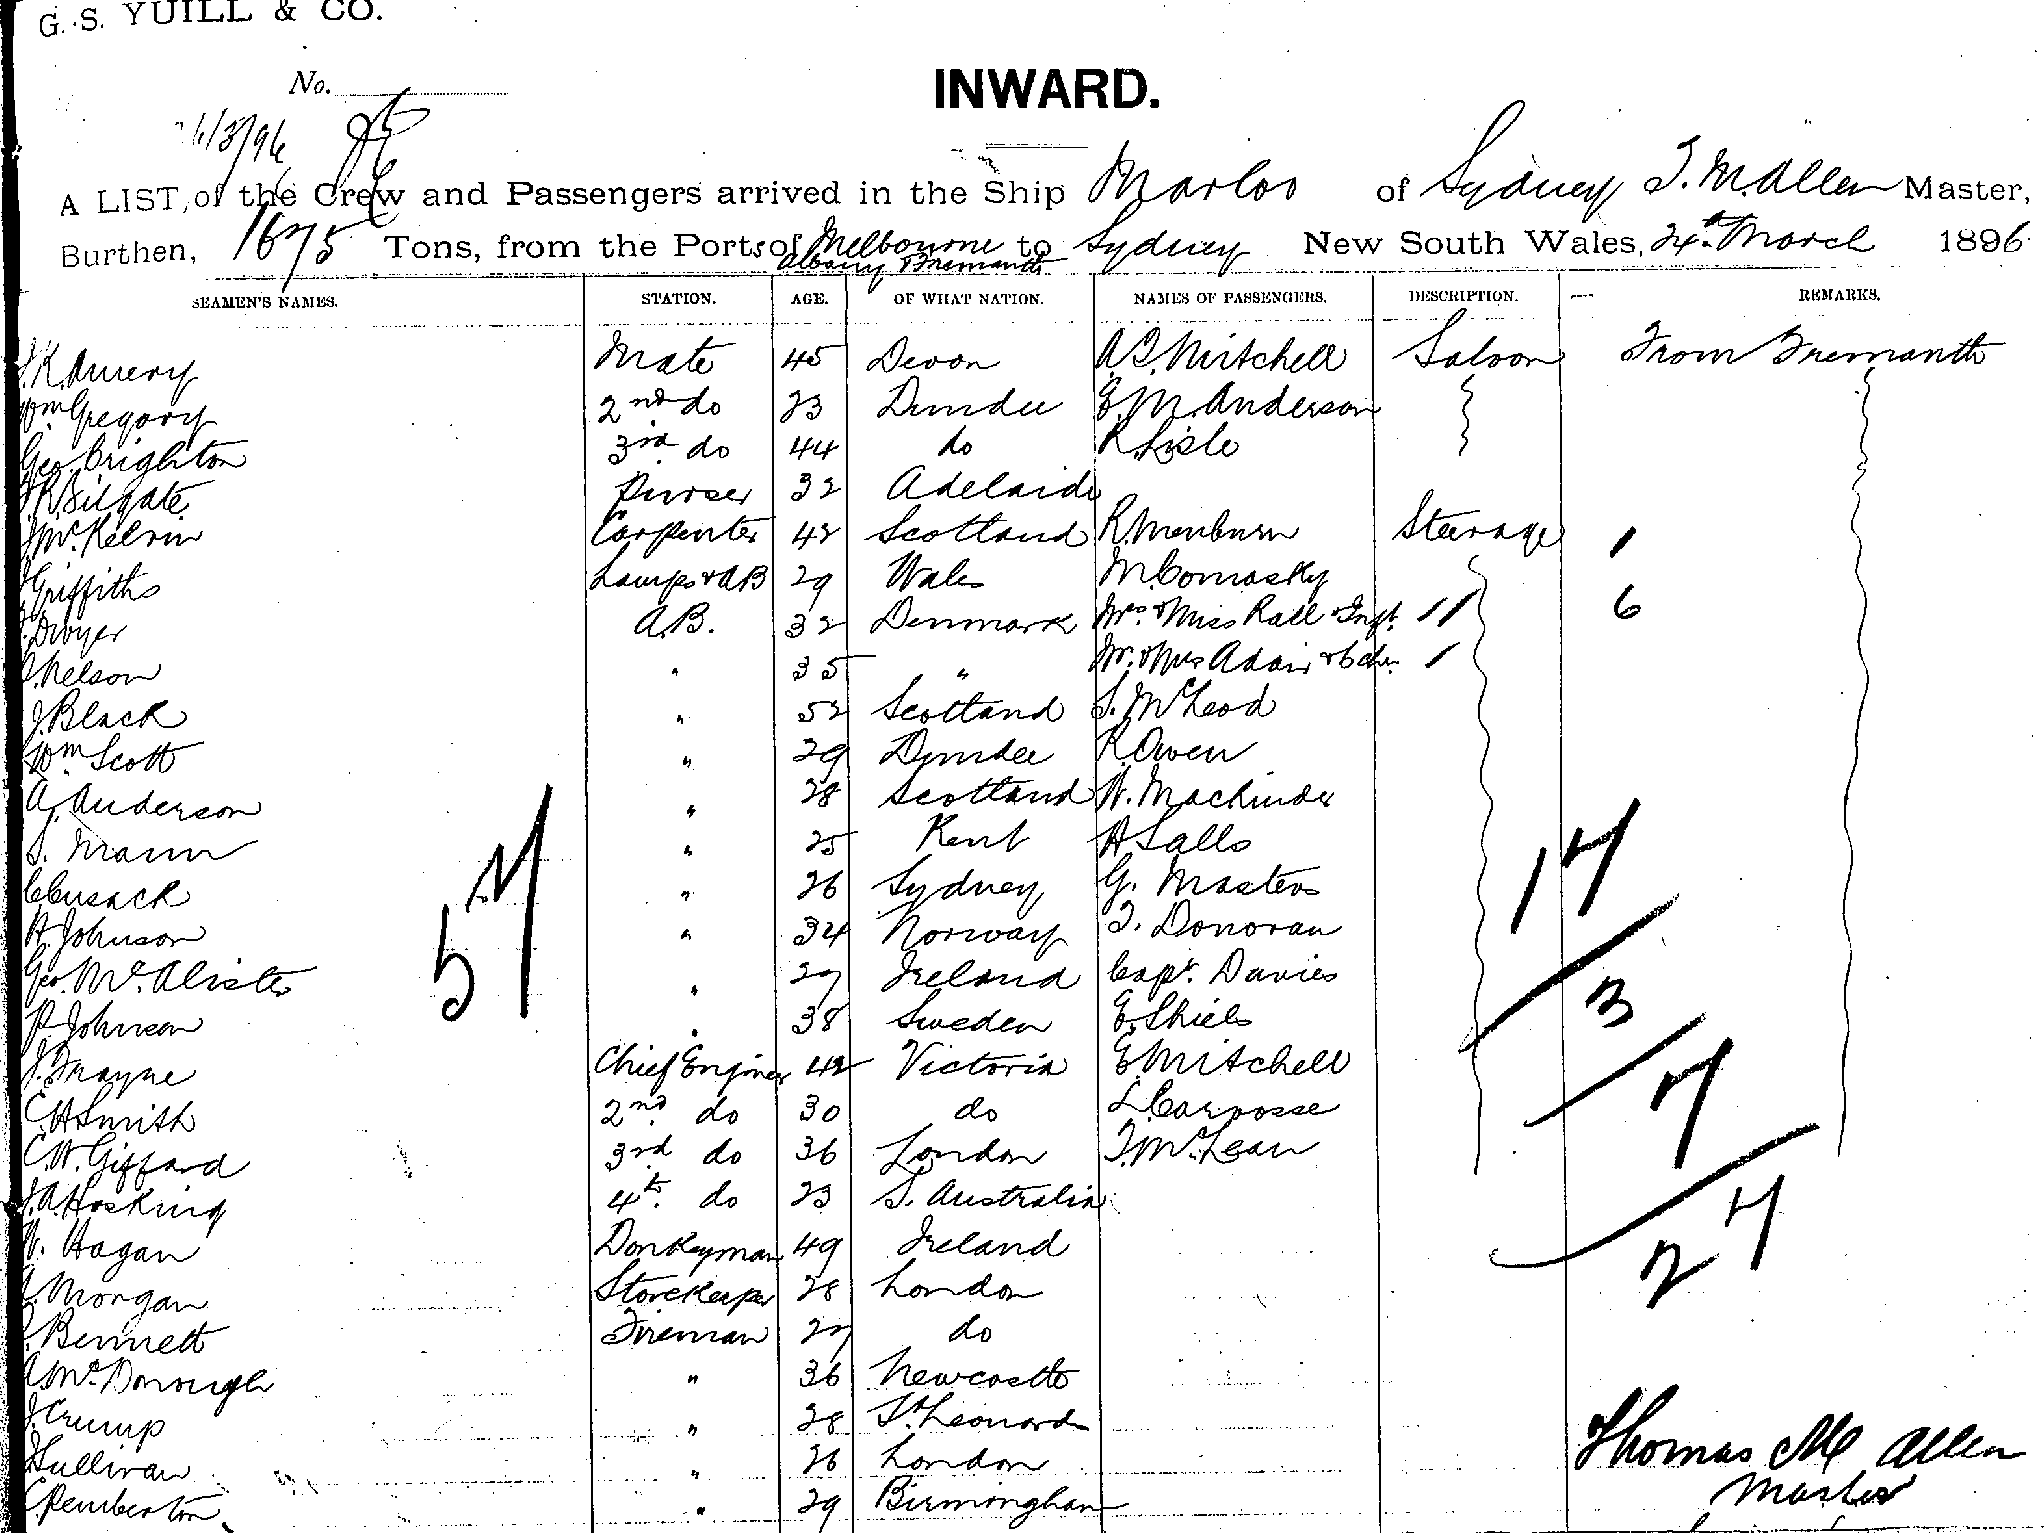 G. S. YUILL & CO.
No.
INWARD.
A LIST, of the Crew and Passengers arrived in the Ship Marloo of Sydney T. M. Allen Master,
Burthen, 1675 Tons, from the Ports of Melbourne to Sydney New South Wales, 24th March 1896
Albany Fremantle
SEAMEN'S NAMES. STATION. AGE. OF WHAT NATION. NAMES OF PASSENGERS. DESCRIPTION. REMARKS.
Mate 45 Devon A. T. Mitchell Saloon From Fremantle
Wm Gregory 2nd do 23 Dundee E. M. Anderson
Geo. Brighton 3rd do 44 do R. Lisle
Purser 32 Adelaide
J. McKelvin Carpenter 42 Scotland Steerage 1
J Griffiths Lamps & AB 29 Wales M. Comasky
Dwyer A.B. 32 Denmark Mrs & Miss Rall & Inft. 11 6
Nelson " 35 " Mr. & Mrs Adair & 6 chn. 1
J. Black " 52 Scotland S. McLeod
Wm Scott " 29 Dundee R. Owen
A. Anderson " 28 Scotland W. Mackinder
S. Mann " 25 Kent A Salls
C Cusack " 26 Sydney G. Masters
A. Johnson " 34 Norway T. Donovan
Geo. McAlister " 27 Ireland Capt. Davies
P. Johnson " 38 Sweden E. Shiels
J. Mayne Chief Engineer 42 Victoria E Mitchell
C. H Smith 2nd do 30 do L. Carosse
C. W. Giffard 3rd do 36 London T. McLean
J. A. Hosking 4th do 23 S. Australia
W. Hagan Donkeyman 49 Ireland
Morgan Storekeeper 28 London
Bennett Fireman 27 do
A. McDonough " 36 Newcastle
J. Crump " 28 St. Leonards
J Sullivan " 26 London
C Pemberton " 29 Birmingham
57
17
3
7
27
Thomas M Allen
Master